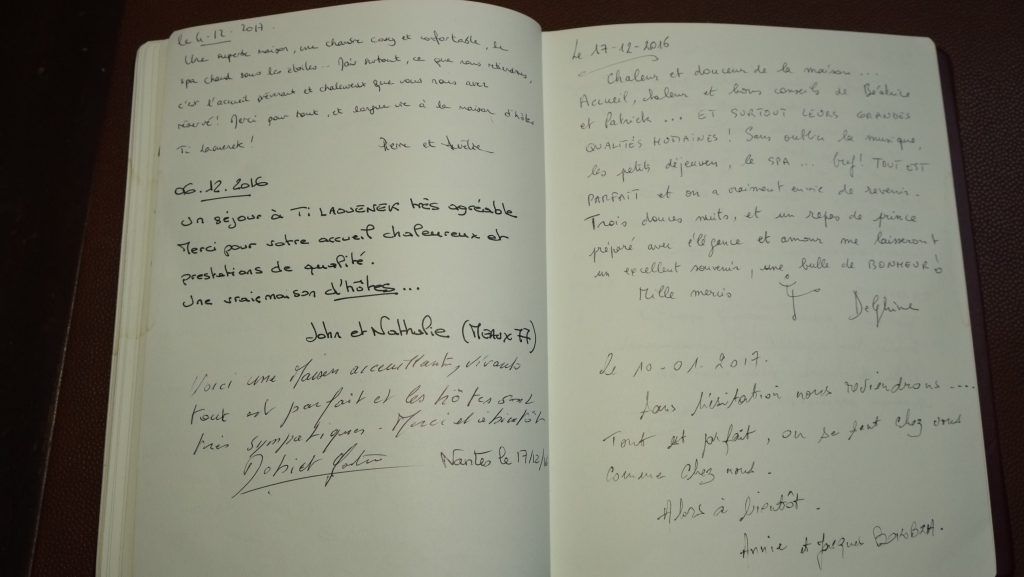 Le 4.12.2017.
Une superbe maison, une chambre cosy et confortable, le
spa chaud sous les étoiles... Mais surtout, ce que nous retiendrons,
c'est l'accueil prévenant et chaleureux que vous nous avez
réservé! Merci pour tout, et longue vie à la maison d'hôtes
Ti Laouenek!
Pierre et
06.12.2016
Un séjour à Ti LAOUENEK très agréable
Merci pour votre accueil chaleureux et
prestations de qualité.
Une vraie maison d'hôtes...
John et Nathalie (MEAUX 77)
Voici une Maison accueillant, vivante
tout est parfait et les hôtes sont
très sympatiques. Merci et à bientôt
Nantes le 17/12/16
Le 17-12-2016
Chaleur et douceur de la maison...
Accueil, chaleur et bons conseils de Béatrice
et Patrick... ET SURTOUT LEURS GRANDES
QUALITÉS HUMAINES! Sans oublier la musique,
les petits déjeuners, le SPA... bref! TOUT EST
PARFAIT et on a vraiment envie de revenir.
Trois douces nuits, et un repas de prince
préparé avec élégance et amour me laisseront
un excellent souvenir, une bulle de BONHEUR!
Mille mercis Delphine
Le 10-01.2017.
Sans hésitation nous reviendrons....
Tout est parfait, on se sent chez vous
comme chez nous.
Alors à bientôt.
Annie et Jacques